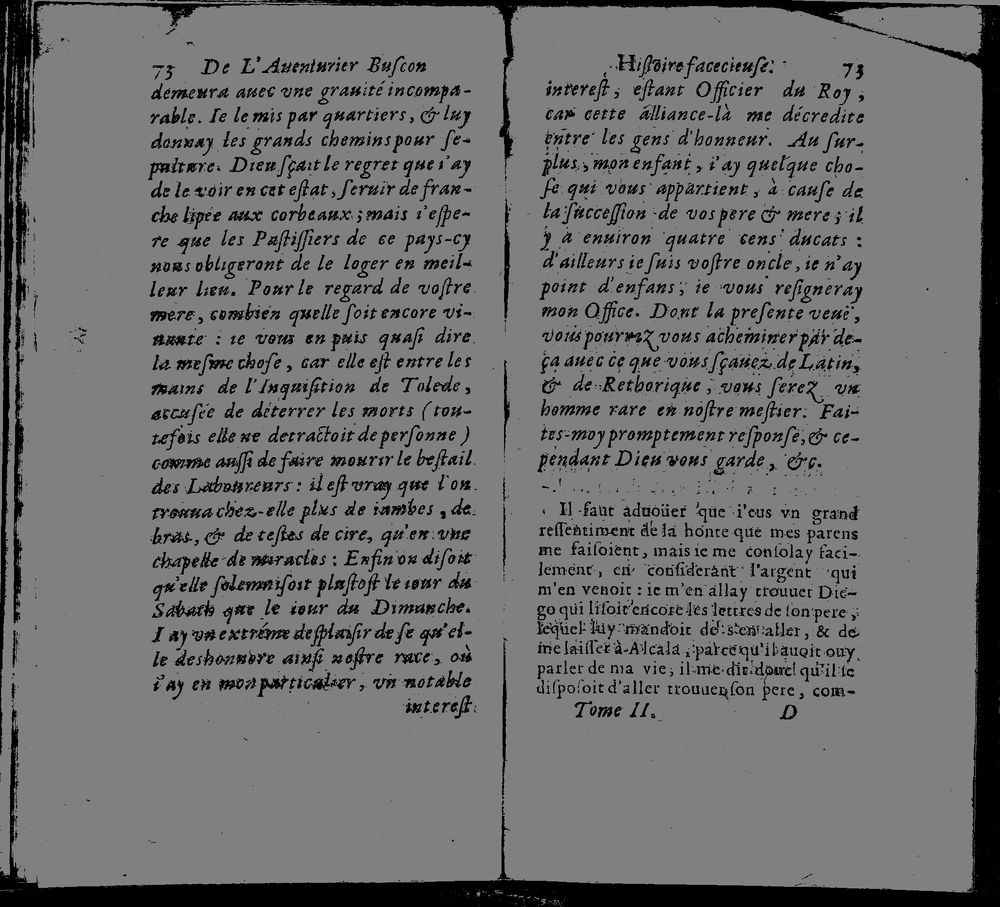 73 De L'Auenturier Buſcon
demeura auec vne grauité incompa-
rable. Ie le mis par quartiers, & luy
donnay les grands chemins pour ſe-
pulture. Dieu ſçait le regret que i'ay
de le voir en cet eſtat, ſeruir de fran-
che lipée aux corbeaux; mais i'eſpe-
re que les Paſtiſſiers de ce pays-cy
nous obligeront de le loger en meil-
leur lieu. Pour le regard de voſtre
mere, combien quelle ſoit encore vi-
uante : ie vous en puis quaſi dire
la meſme choſe, car elle eſt entre les
mains de l'Inquiſition de Tolede,
accuſée de déterrer les morts (tou-
tefois elle ne detractoit de perſonne)
comme auſſi de faire mourir le beſtail
des Laboureurs : il eſt vray que l'on
trouua chez-elle plus de iambes, de
bras, & de teſtes de cire, qu'en vne
chapelle de miracles : Enfin on diſoit
qu'elle ſolemniſoit pluſtoſt le iour du
Sabath que le iour du Dimanche.
I'ay vn extréme deſplaiſir de ſe qu'el-
le deshonnore ainſi noſtre race, où
i'ay en mon particulier, vn notable
intereſt
Hiſtoire facecieuſe. 73
intereſt, eſtant Officier du Roy,
car cette alliance-là me décredite
entre les gens d'honneur. Au ſur-
plus, mon enfant, i'ay quelque cho-
ſe qui vous appartient, à cauſe de
la ſucceſſion de vos pere & mere; il
y a enuiron quatre cens ducats :
d'ailleurs ie ſuis voſtre oncle, ie n'ay
point d'enfans, ie vous reſigneray
mon Office. Dont la preſente veuë,
vous pourrez vous acheminer par de-
ça auec ce que vous ſçauez de Latin,
& de Rethorique, vous ſerez vn
homme rare en noſtre meſtier. Fai-
tes-moy promptement reſponſe, & ce-
pendant Dieu vous garde, &c.
Il faut aduoüer que i'eus vn grand
reſſentiment de la honte que mes parens
me faiſoient, mais ie me conſolay faci-
lement, en conſiderant l'argent qui
m'en venoit : ie m'en allay trouuer Die-
go qui liſoit encore les lettres de ſon pere,
lequel luy mandoit de s'en aller, & de
me laiſſer à Alcala, parce qu'il auoit ouy
parler de ma vie, il me dit donc qu'il ſe
diſpoſoit d'aller trouuer ſon pere, com-
Tome II. D